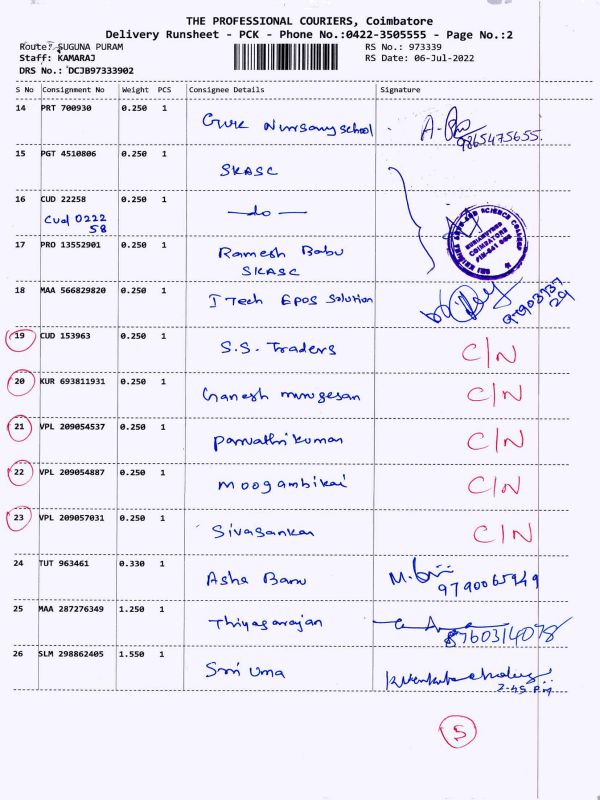 THE PROFESSIONAL COURIERS, Coimbatore
Delivery Runsheet - PCK - Phone No.:0422-3505555 - Page No.:2
Route: SUGUNA PURAM RS No.: 973339
Staff: KAMARAJ RS Date: 06-Jul-2022
DRS No.: DCJB97333902
S No Consignment No Weight PCS Consignee Details Signature
14 PRT 700930 0.250 1 Nursary school
9865475655
15 PGT 4510806 0.250 1 SKASC
16 CUD 22258 0.250 1 —do—
Cud 0222
58
17 PRO 13552901 0.250 1 Ramesh Babu
SKASC
ARTS AND SCIENCE COLLEGE
COIMBATORE
18 MAA 566829820 0.250 1 I Tech Epos Solution
19 CUD 153963 0.250 1 S.S. Traders C/N
20 KUR 693811931 0.250 1 Ganesh murugesan C/N
21 VPL 209054537 0.250 1 Parvathi kumar C/N
22 VPL 209054887 0.250 1 Moogambikai C/N
23 VPL 209057031 0.250 1 Sivasankar C/N
24 TUT 963461 0.330 1 Asha Banu
9790065949
25 MAA 287276349 1.250 1 Thiyagarajan
8760314078
26 SLM 298862405 1.550 1 Sri Uma
2-45 P.M
5